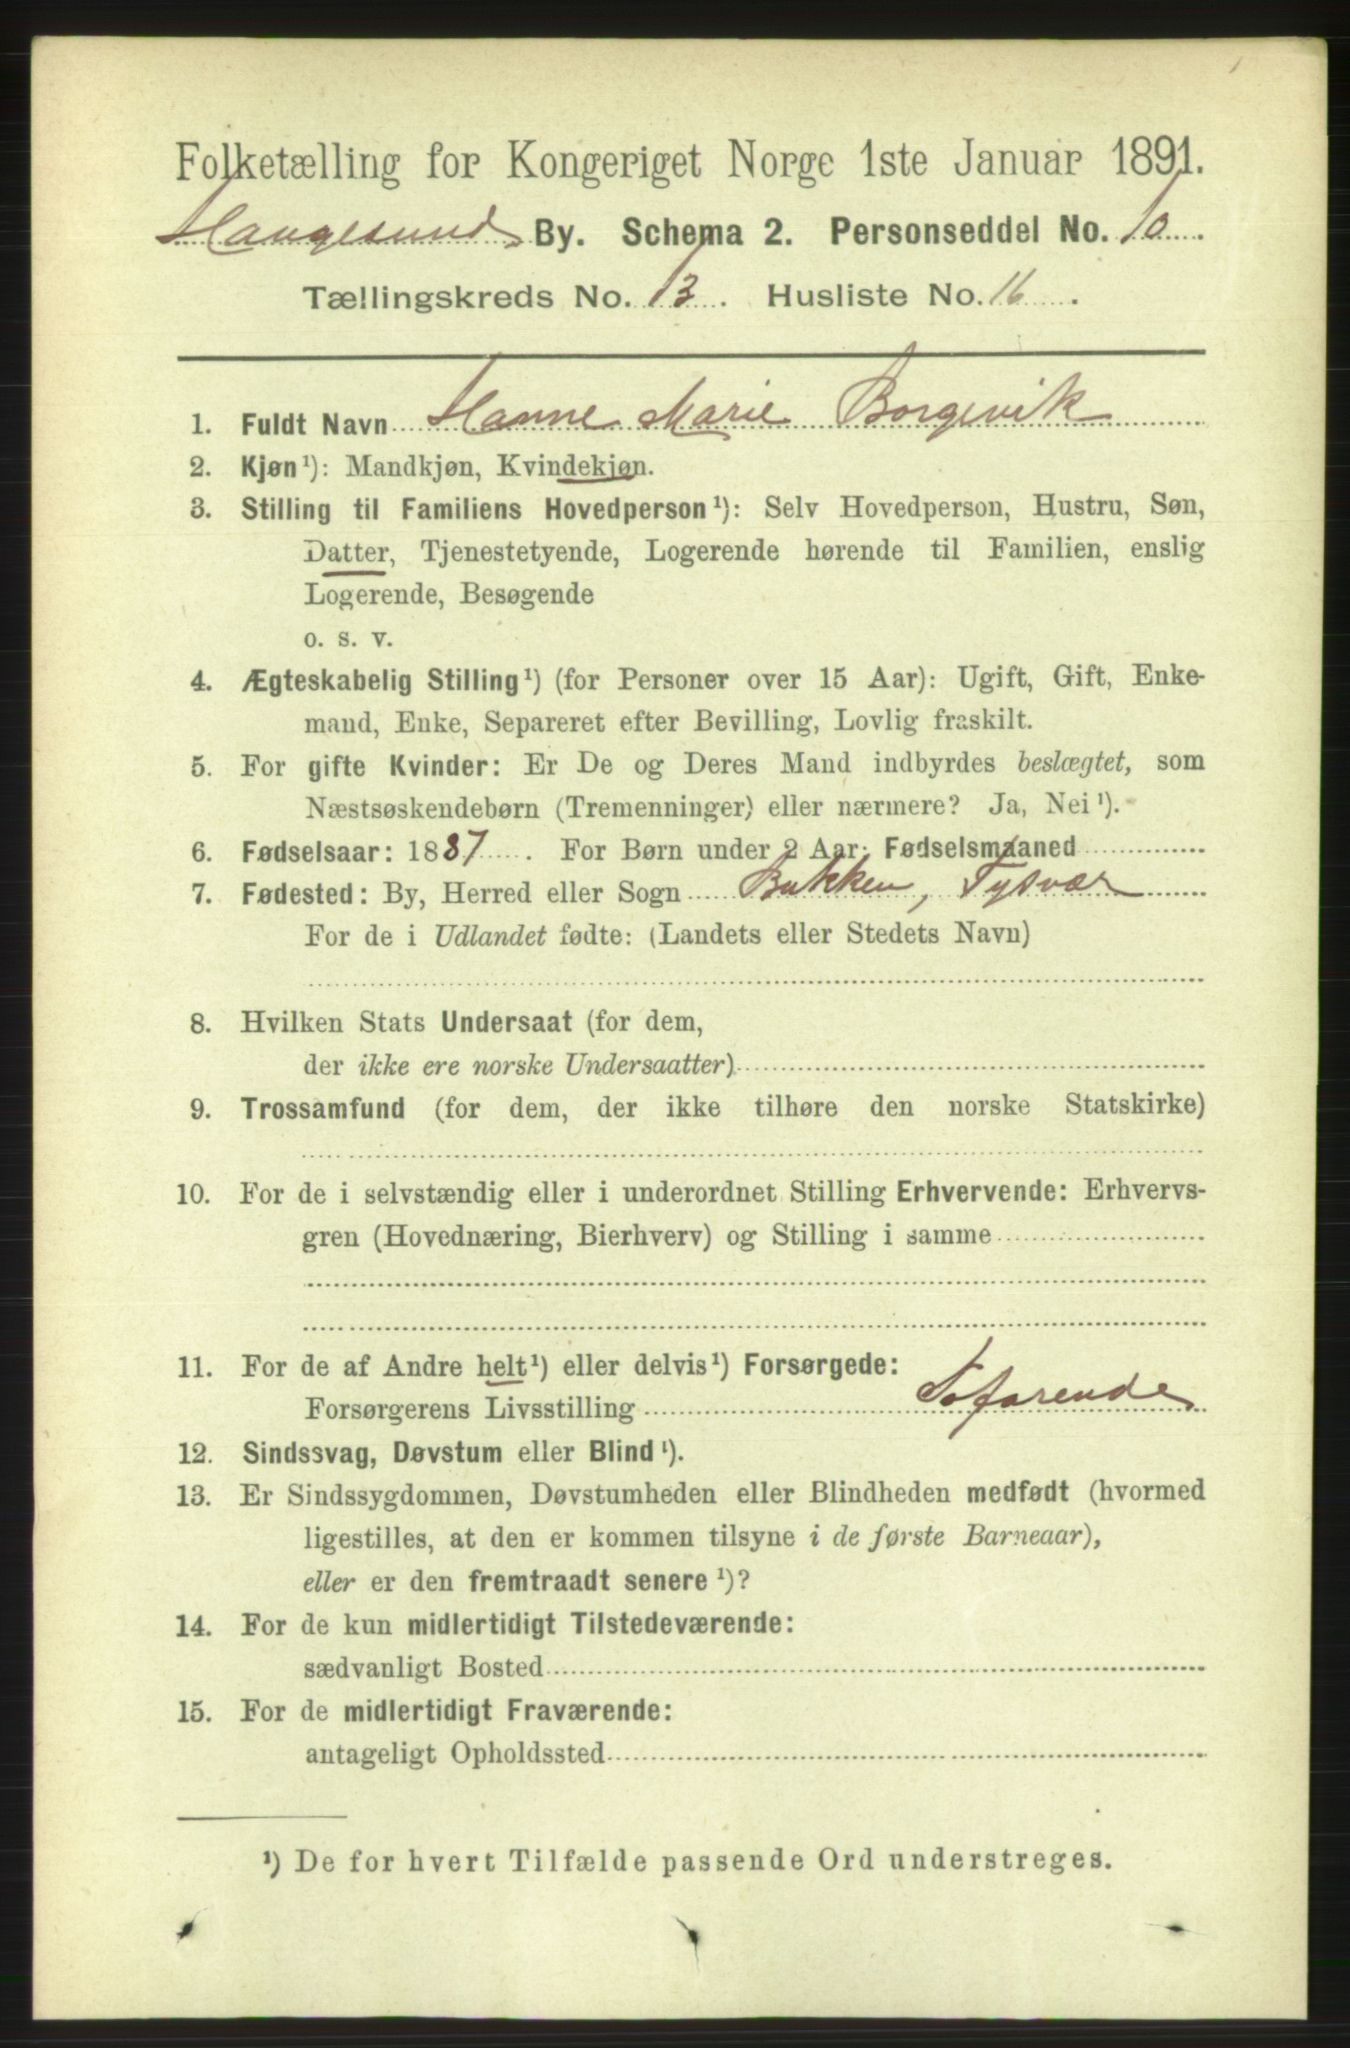 Folketælling for Kongeriget Norge 1ste Januar 1891.
Haugesund By. Schema 2. Personseddel No. 10.
Tællingskreds No. 13. Husliste No. 16.
1. Fuldt Navn Hanne Marie Borgevik
2. Kjøn ¹): Mandkjøn, Kvindekjøn.
3. Stilling til Familiens Hovedperson ¹): Selv Hovedperson, Hustru, Søn,
Datter, Tjenestetyende, Logerende hørende til Familien, enslig
Logerende, Besøgende
o. s. v.
4. Ægteskabelig Stilling ¹) (for Personer over 15 Aar): Ugift, Gift, Enke-
mand, Enke, Separeret efter Bevilling, Lovlig fraskilt.
5. For gifte Kvinder: Er De og Deres Mand indbyrdes beslægtet, som
Næstsøskendebørn (Tremenninger) eller nærmere? Ja, Nei ¹).
6. Fødselsaar: 1887. For Børn under 2 Aar: Fødselsmaaned
7. Fødested: By, Herred eller Sogn Bukken, Tysvær
For de i Udlandet fødte: (Landets eller Stedets Navn)
8. Hvilken Stats Undersaat (for dem,
der ikke ere norske Undersaatter)
9. Trossamfund (for dem, der ikke tilhøre den norske Statskirke)
10. For de i selvstændig eller i underordnet Stilling Erhvervende: Erhvervs-
gren (Hovednæring, Bierhverv) og Stilling i samme
11. For de af Andre helt ¹) eller delvis ¹) Forsørgede:
Forsørgerens Livsstilling Søfarende
12. Sindssvag, Døvstum eller Blind ¹).
13. Er Sindssygdommen, Døvstumheden eller Blindheden medfødt (hvormed
ligestilles, at den er kommen tilsyne i de første Barneaar),
eller er den fremtraadt senere ¹)?
14. For de kun midlertidigt Tilstedeværende:
sædvanligt Bosted
15. For de midlertidigt Fraværende:
antageligt Opholdssted
¹) De for hvert Tilfælde passende Ord understreges.